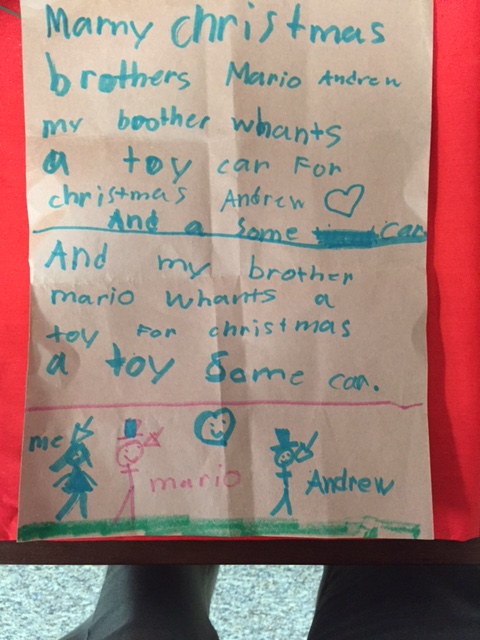 Mamy christmas
brothers Mario Andrew
my boother whants
a toy car For
christmas Andrew
And a Some can
And my brother
mario whants a
toy For christmas
a toy Some can.
me
mario
Andrew